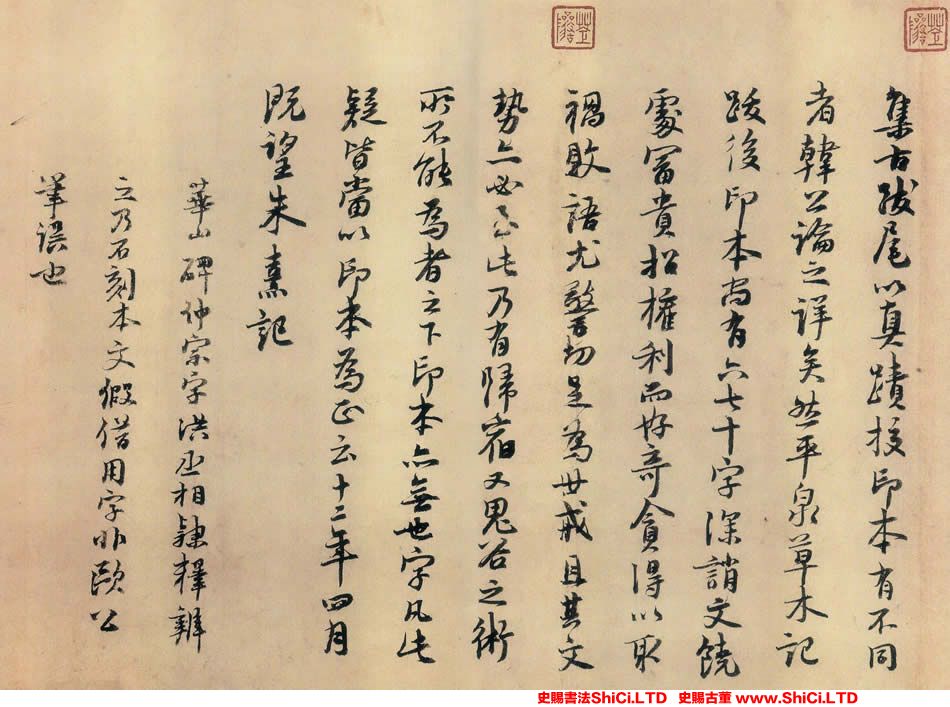 集古跋尾以真蹟挍印本有不同
者韓公論之詳矣然平泉草木記
跋後印本尚有六七十字深誚文饒
處冨貴招權利而好竒貪得以取
禍敗語尤警切足為世戒且其文
勢亦必至此乃有歸宿又鬼谷之術
所不能為者之下印本亦無也字凡此
疑皆當以印本為正云十二年四月
既望朱熹記
華山碑仲宗字洪丞相隸釋辨
之乃石刻本文假借用字非歐公
筆誤也
史賜書法ShiCi.LTD 史賜古董 www.ShiCi.LTD